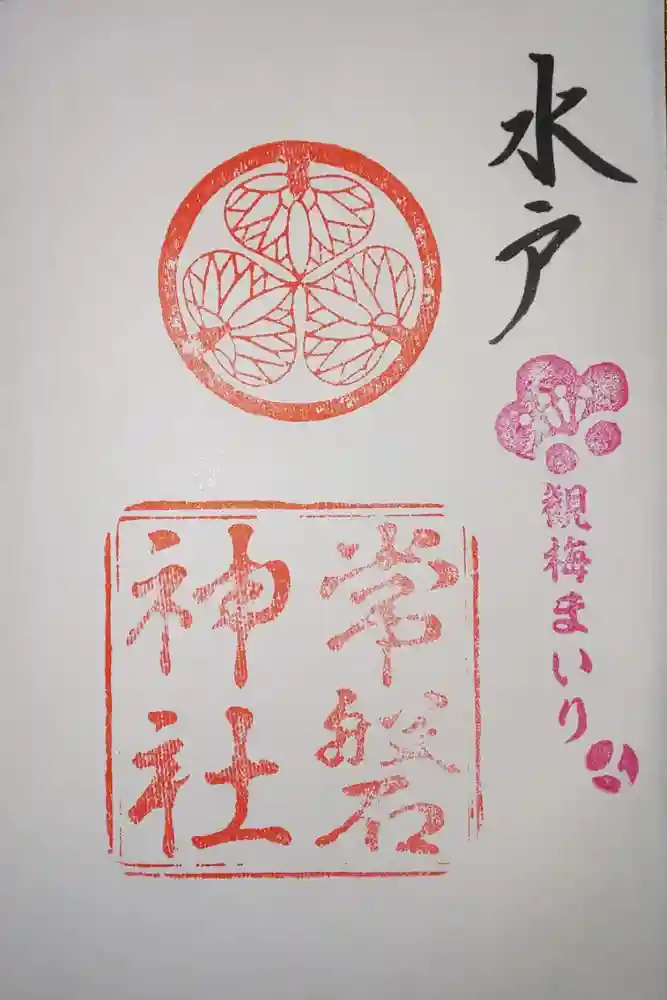 水戸
観梅まいり
常磐
神社